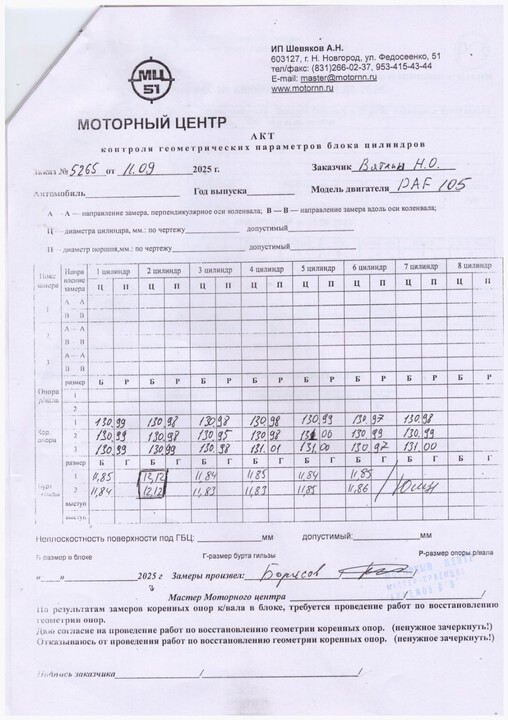 ИП Шевяков А.Н.
603127, г. Н. Новгород, ул. Федосеенко, 51
тел/факс: (831)266-02-37, 953-415-43-44
E-mail: master@motornn.ru
www.motornn.ru
МЦ
51
МОТОРНЫЙ ЦЕНТР
АКТ
контроля геометрических параметров блока цилиндров
Заказ № 5265 от 11.09 2025 г. Заказчик Н.О.
Автомобиль Год выпуска Модель двигателя DAF 105
А — А — направление замера, перпендикулярное оси коленвала; В — В — направление замера вдоль оси коленвала;
Ц — диаметра цилиндра, мм.: по чертежу допустимый
П — диаметр поршня,мм.: по чертежу допустимый
Пояс замера Направление замера 1 цилиндр 2 цилиндр 3 цилиндр 4 цилиндр 5 цилиндр 6 цилиндр 7 цилиндр 8 цилиндр
Ц П Ц П Ц П Ц П Ц П Ц П Ц П Ц П
1 А — А
В — В
2 А — А
В — В
3 А — А
В — В
Опора р/вала размер Б Р Б Р Б Р Б Р Б Р Б Р Б Р Б Р
1
2
Кор. опора 1 130,99 130,98 130,98 130,98 130,99 130,97 130,98
2 130,99 130,98 130,95 130,98 131,00 130,99 130,99
3 130,99 130,99 130,98 131,01 131,00 130,97 131,00
размер Б Г Б Г Б Г Б Г Б Г Б Г Б Г Б Г
1 11,85 12,12 11,84 11,85 11,84 11,85
2 11,84 12,12 11,83 11,83 11,85 11,86
выступ
выступ
Неплоскостность поверхности под ГБЦ: мм допустимый: мм
Б-размер в блоке Г-размер бурта гильзы Р-размер опоры р/вала
«__» 2025 г Замеры произвел: Борисов
Мастер Моторного центра /
По результатам замеров коренных опор к/вала в блоке, требуется проведение работ по восстановлению
геометрии опор.
Даю согласие на проведение работ по восстановлению геометрии коренных опор. (ненужное зачеркнуть!)
Отказываюсь от проведения работ по восстановлению геометрии коренных опор. (ненужное зачеркнуть!)
Подпись заказчика / /